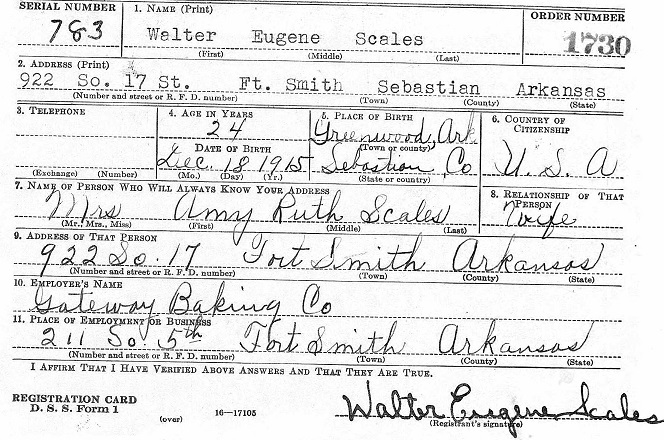 SERIAL NUMBER 1. NAME (Print) ORDER NUMBER
783 Walter Eugene Scales 1730
(First) (Middle) (Last)
2. ADDRESS (Print)
922 So. 17 St. Ft. Smith Sebastian Arkansas
(Number and street or R. F. D. number) (Town) (County) (State)
3. TELEPHONE 4. AGE IN YEARS 5. PLACE OF BIRTH 6. COUNTRY OF CITIZENSHIP
24 Greenwood, Ark
DATE OF BIRTH (Town or county)
Dec. 18 1915 Sebastian, Co U. S. A
(Exchange) (Number) (Mo.) (Day) (Yr.) (State or country)
7. NAME OF PERSON WHO WILL ALWAYS KNOW YOUR ADDRESS 8. RELATIONSHIP OF THAT PERSON
Mrs Amy Ruth Scales Wife
(Mr., Mrs., Miss) (First) (Middle) (Last)
9. ADDRESS OF THAT PERSON
922 So. 17 Fort Smith Arkansas
(Number and street or R. F. D. number) (Town) (County) (State)
10. EMPLOYER'S NAME
Gateway Baking Co
11. PLACE OF EMPLOYMENT OR BUSINESS
211 So 5th Fort Smith Arkansas
(Number and street or R. F. D. number) (Town) (County) (State)
I AFFIRM THAT I HAVE VERIFIED ABOVE ANSWERS AND THAT THEY ARE TRUE.
REGISTRATION CARD
D. S. S. Form 1 (over) 16—17105 Walter Eugene Scales
(Registrant's signature)